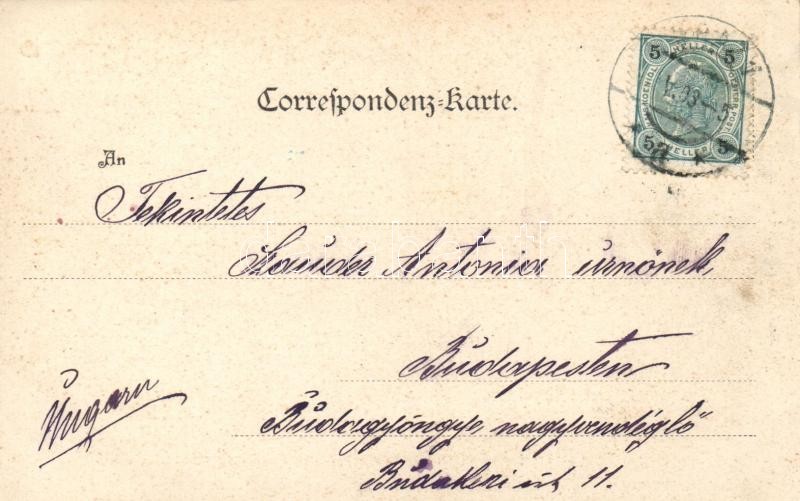 Correspondenz-Karte.
5 HELLER 5
5 HELLER 5
An
Tekintetes
Szauder Antonia úrnőnek,
Budapesten
Ungarn
Budagyöngye, nagyvendéglő
Budakeszi út 11.